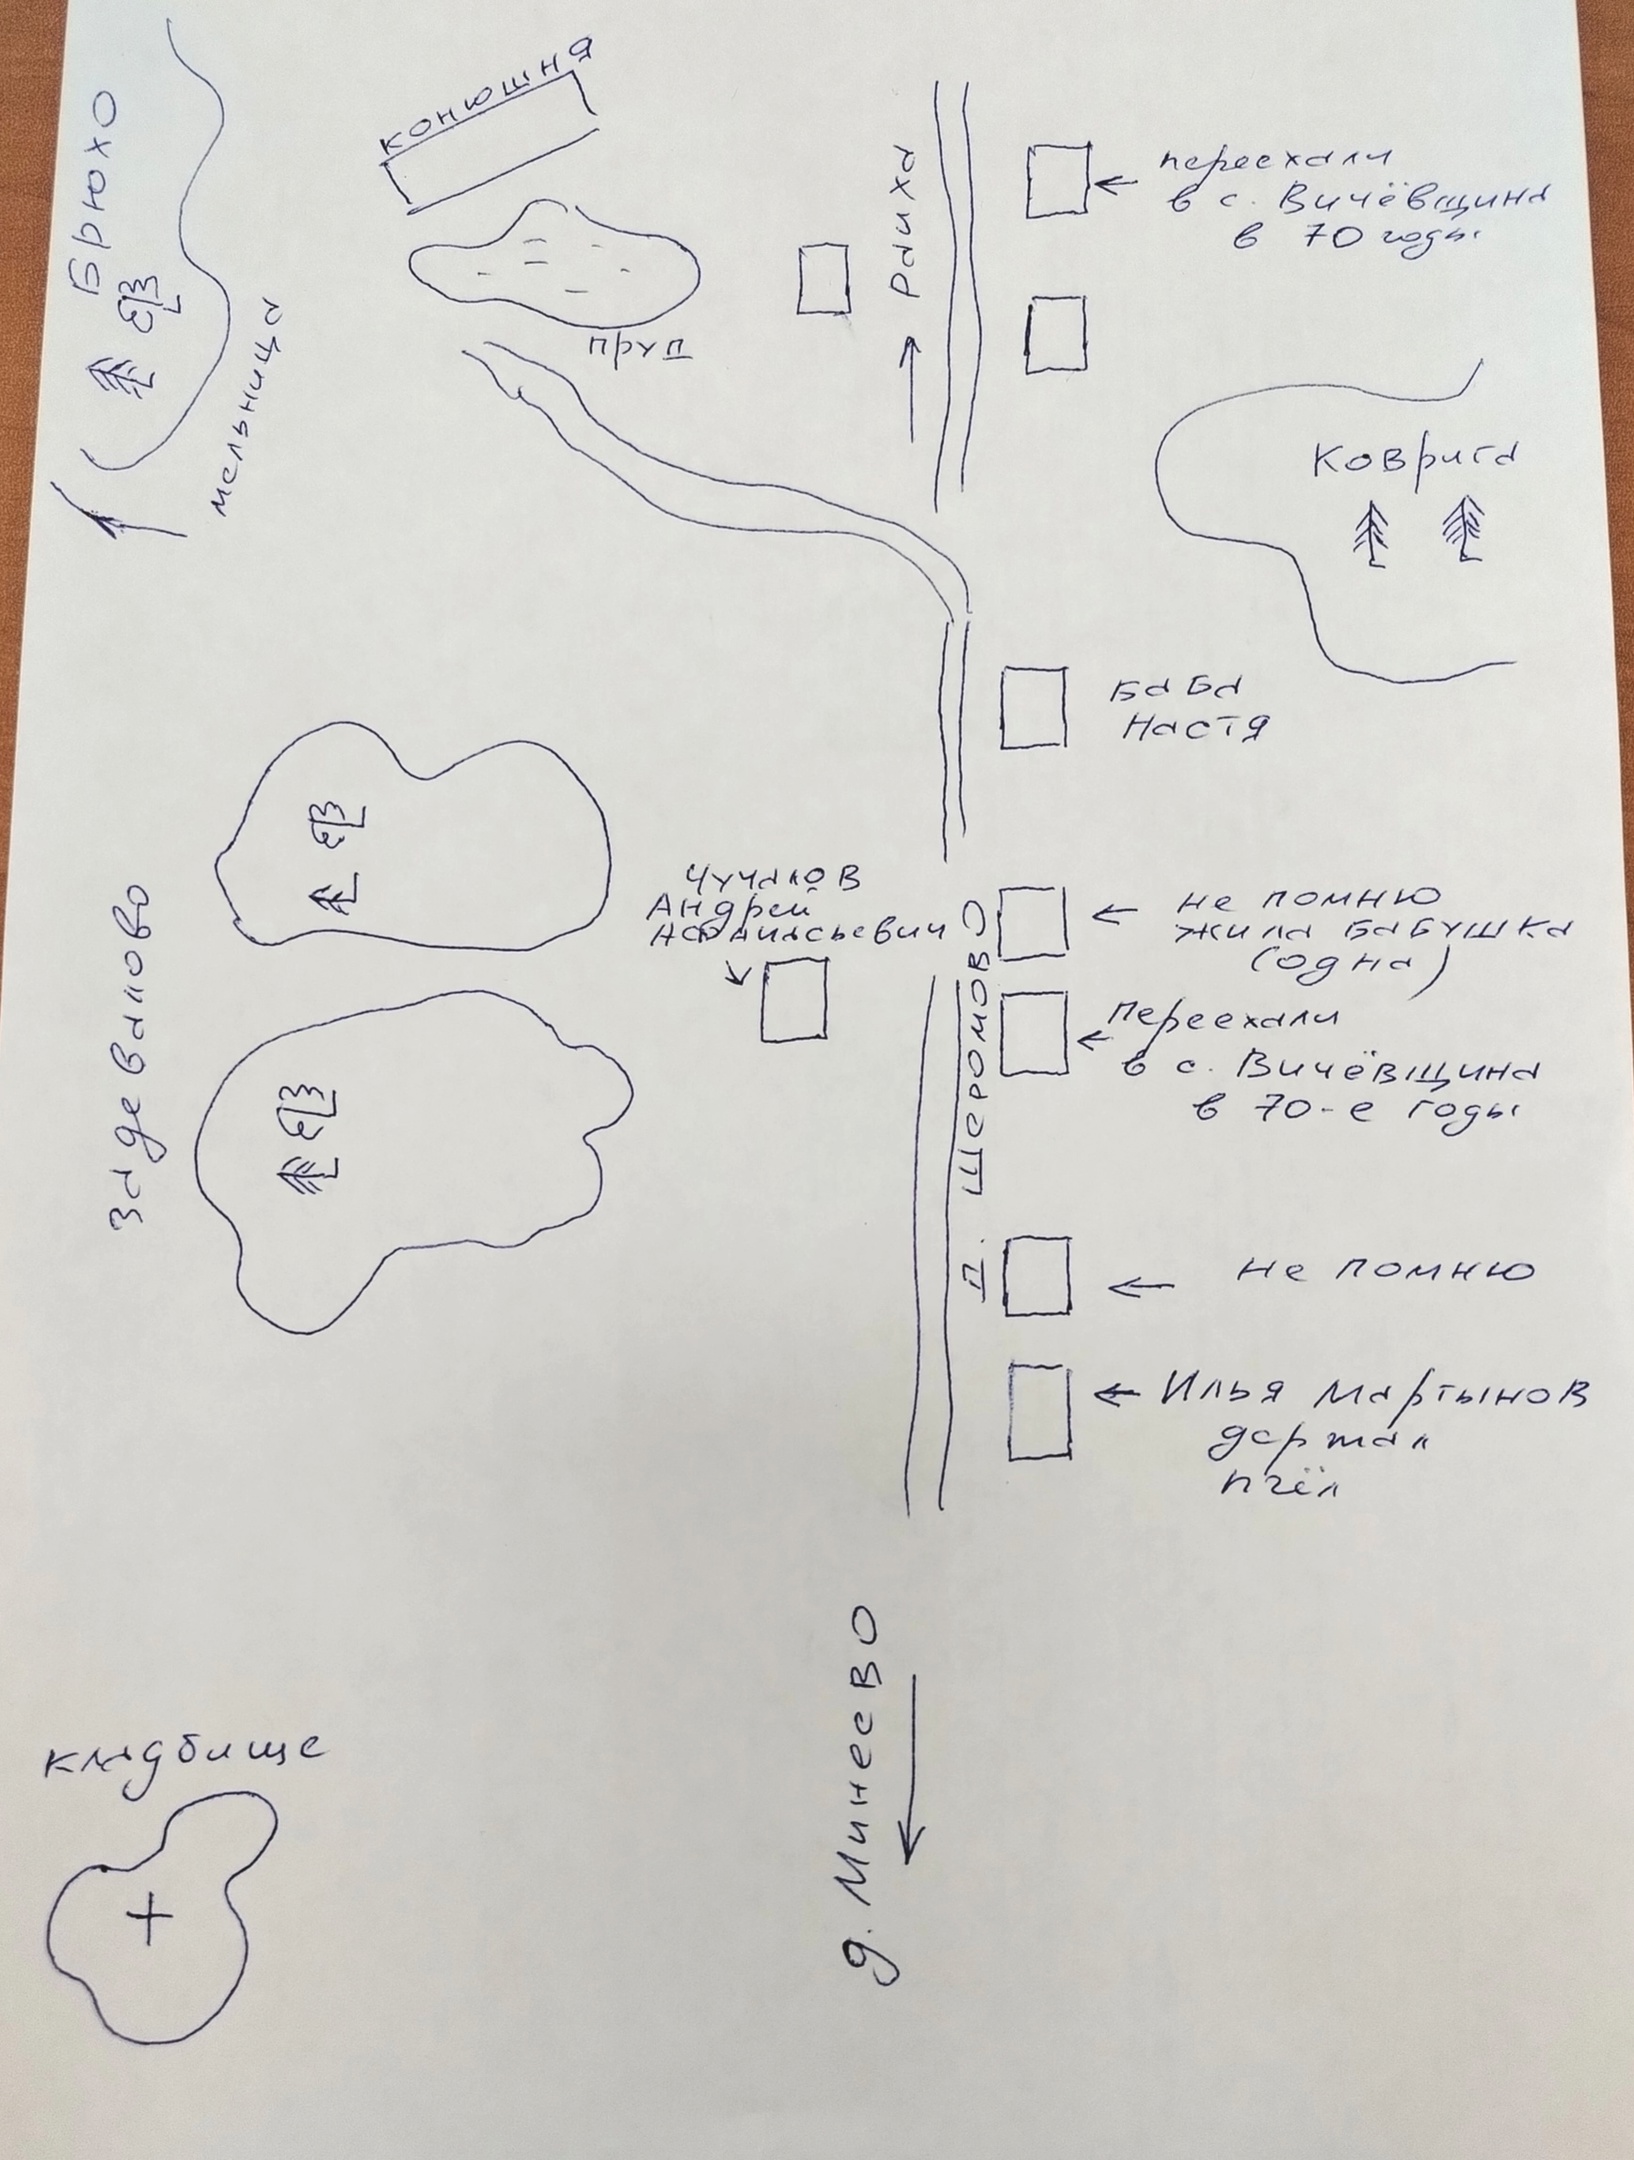 Брюхо
конюшня
мельница
пруд
Раиха
переехали
в с. Вичёвщина
в 70 годы
Коврига
Баба
Настя
Задевалово
Чучалов
Андрей
Афанасьевич
не помню
жила бабушка
(одна)
переехали
в с. Вичёвщина
в 70-е годы
Д. Шеромово
не помню
Илья Мартынов
держал
пчёл
д. Минеево
кладбище